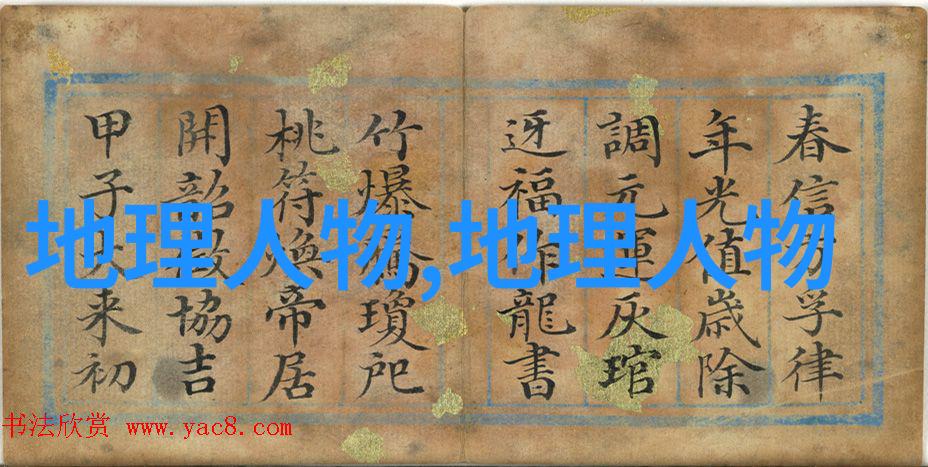 春信孚律
年光值歳除
調元運灰琯
迓福作龍書
竹爆瓊戺
桃符煥帝居
開韶協吉
甲子来初
地理人物,地理人物
书法欣赏 www.yac8.com